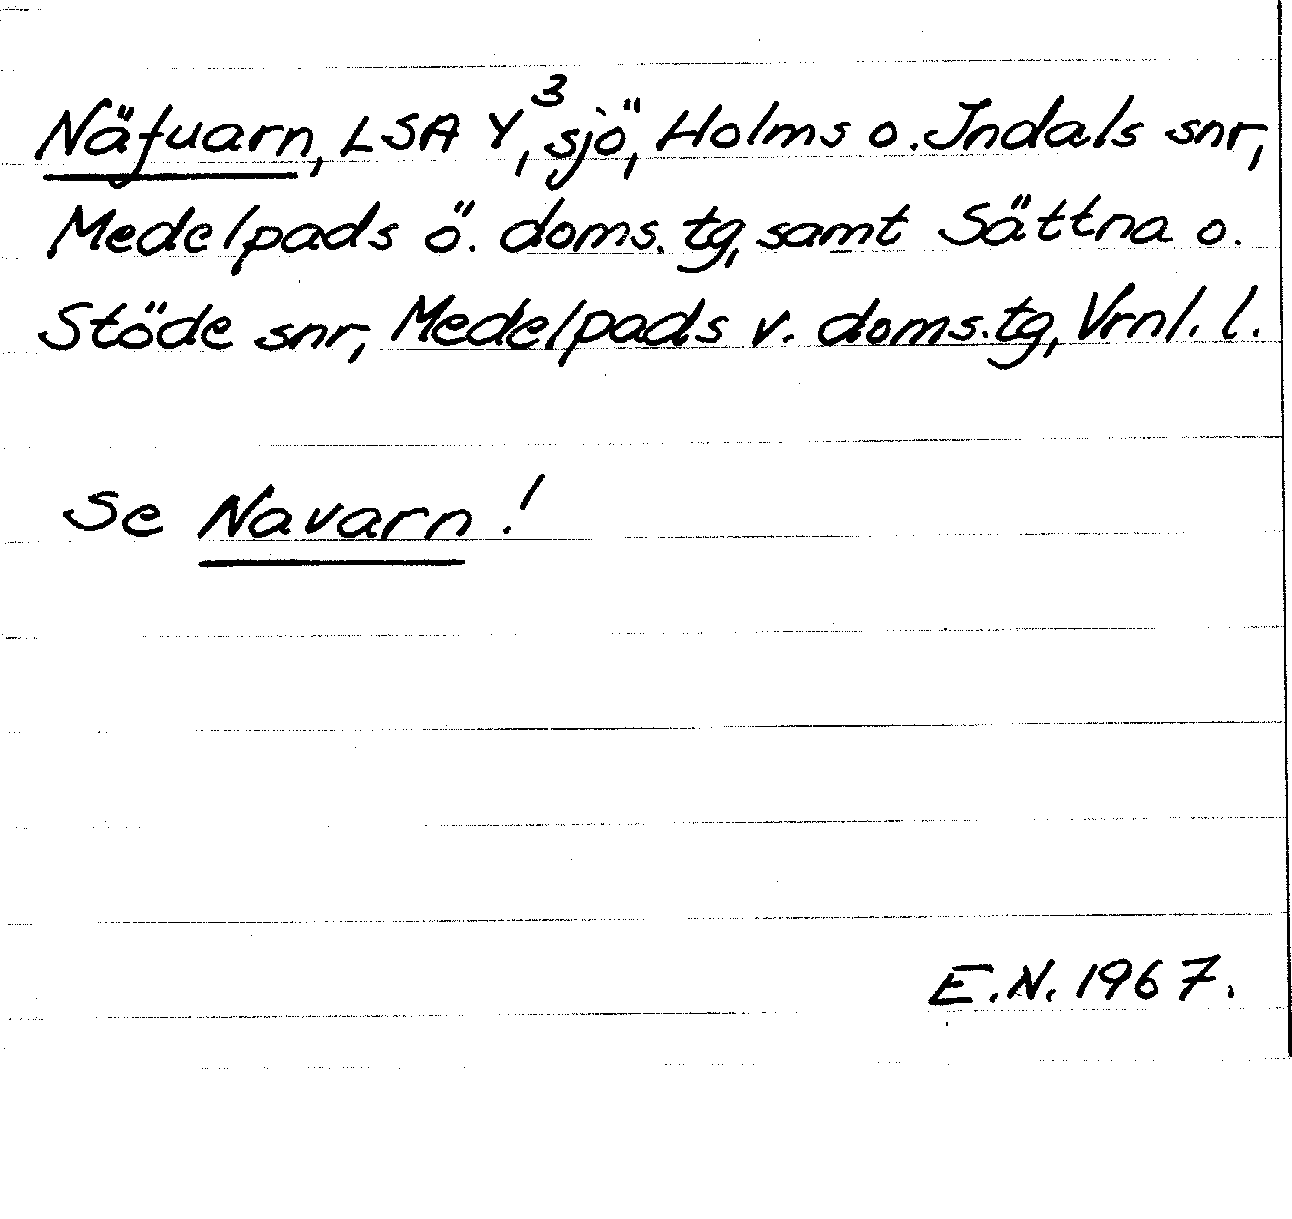 Näfuarn, LSA Y³, sjö, Holms o. Indals snr,
Medelpads ö. doms. tg, samt Sättna o.
Stöde snr, Medelpads v. doms. tg, Vrnl. l.
Se Navarn!
E.N. 1967.